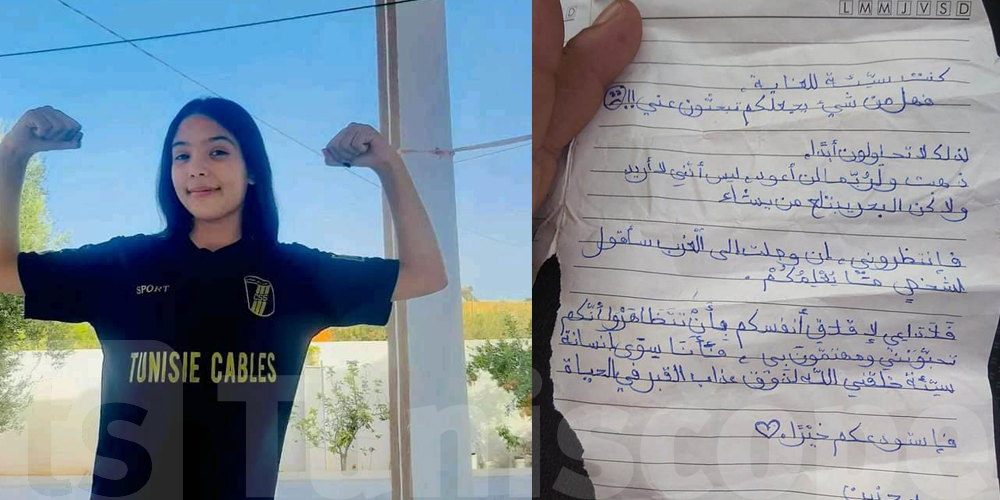 SPORT
CSS
TUNISIE CABLES
L M M J V S D
كنت سيّئة للغاية.
فهل من شيء يجعلكم تبحثون عني!!
لذلك لا تحاولون أبدًا.
ذهبت ولربّما لن أعود، ليس أنّني لا أريد
ولاكن البحر يبتلع من يشاء
فإنتظروني، إن وصلت الى الغرب سأقول
لشخص ممّا يُهِمُكُمْ.
فلا داعي لإقلاق أنفسكم وأنْ تتظاهرُوا أنّكم
تحبّونني ومهتمّون بي، فأنا سوّى إنسانة
سيّئة خلقني اللّه لذوق عذاب القبر في الحياة
فإستودعكم خَيْرًا.
Tuniscope